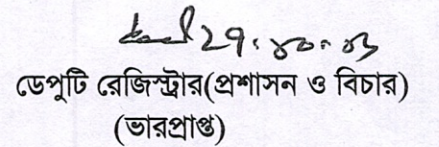 ডেপুটি রেজিস্ট্রার(প্রশাসন ও বিচার)
(ভারপ্রাপ্ত)